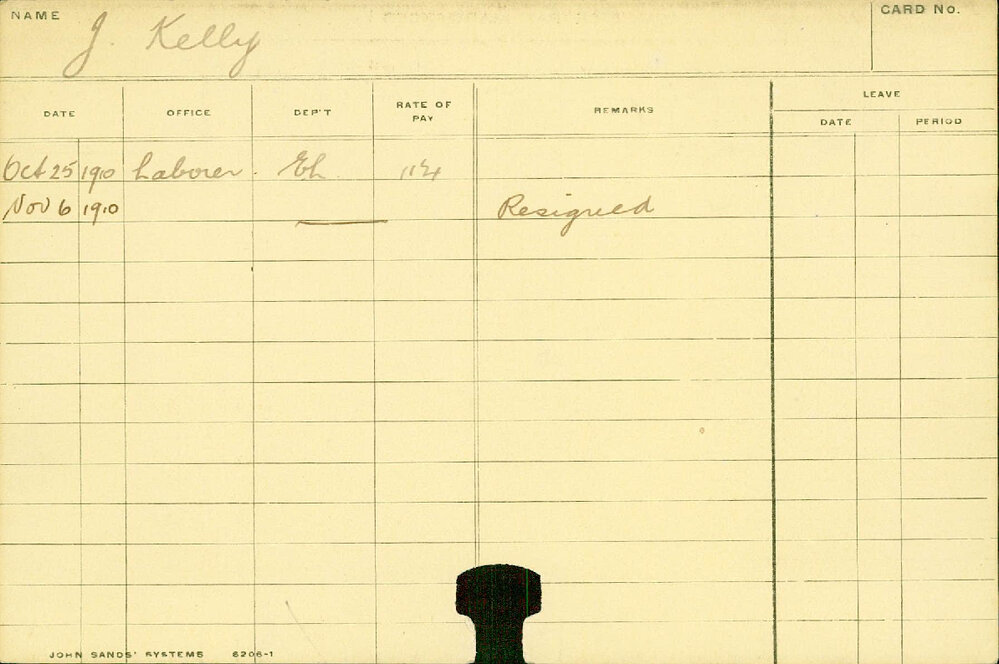 NAME J. Kelly CARD No.
DATE OFFICE DEP'T RATE OF PAY REMARKS LEAVE
DATE PERIOD
Oct 25 1910 Laborer. Eh
Nov 6 1910 Resigned
JOHN SANDS' SYSTEMS 6206-1